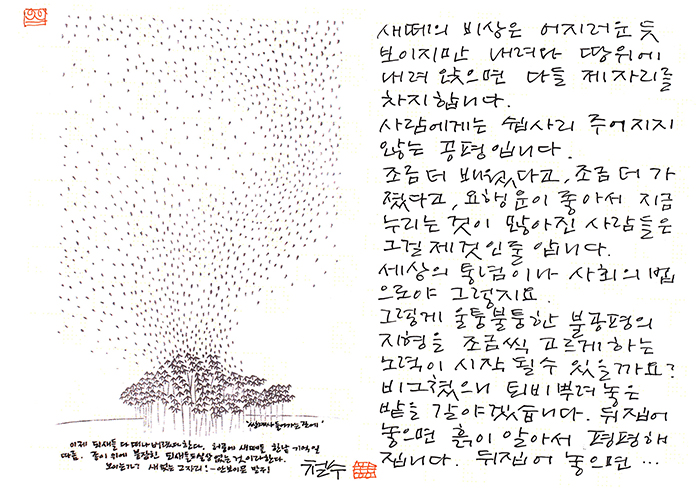 이제 되새들 다 떠나버렸다 한다. 허공에 새떼들 한낱 기억일
따름. 종이 위에 붙잡힌 되새들도 실상 없는 것이라 한다.
보이는가? 새 없는 그자리! - 안보이면 말구!
철수
새떼의 비상은 어지러운 듯
보이지만 내려와 땅위에
내려 앉으면 다들 제자리를
차지합니다.
사람에게는 쉽사리 주어지지
않는 공평입니다.
조금 더 배웠다고, 조금 더 가
졌다고, 요행 운이 좋아서 지금
누리는 것이 많아진 사람들은
그걸 제것인줄 압니다.
세상의 통념이나 사회의 법
으로야 그렇지요.
그렇게 울퉁불퉁한 불공평의
지형을 조금씩 고르게 하는
노력이 시작 될수 있을까요?
비그쳤으니 퇴비뿌려 놓은
밭을 갈아야겠습니다. 뒤집어
놓으면 흙이 알아서 평평해
집니다. 뒤집어 놓으면 …